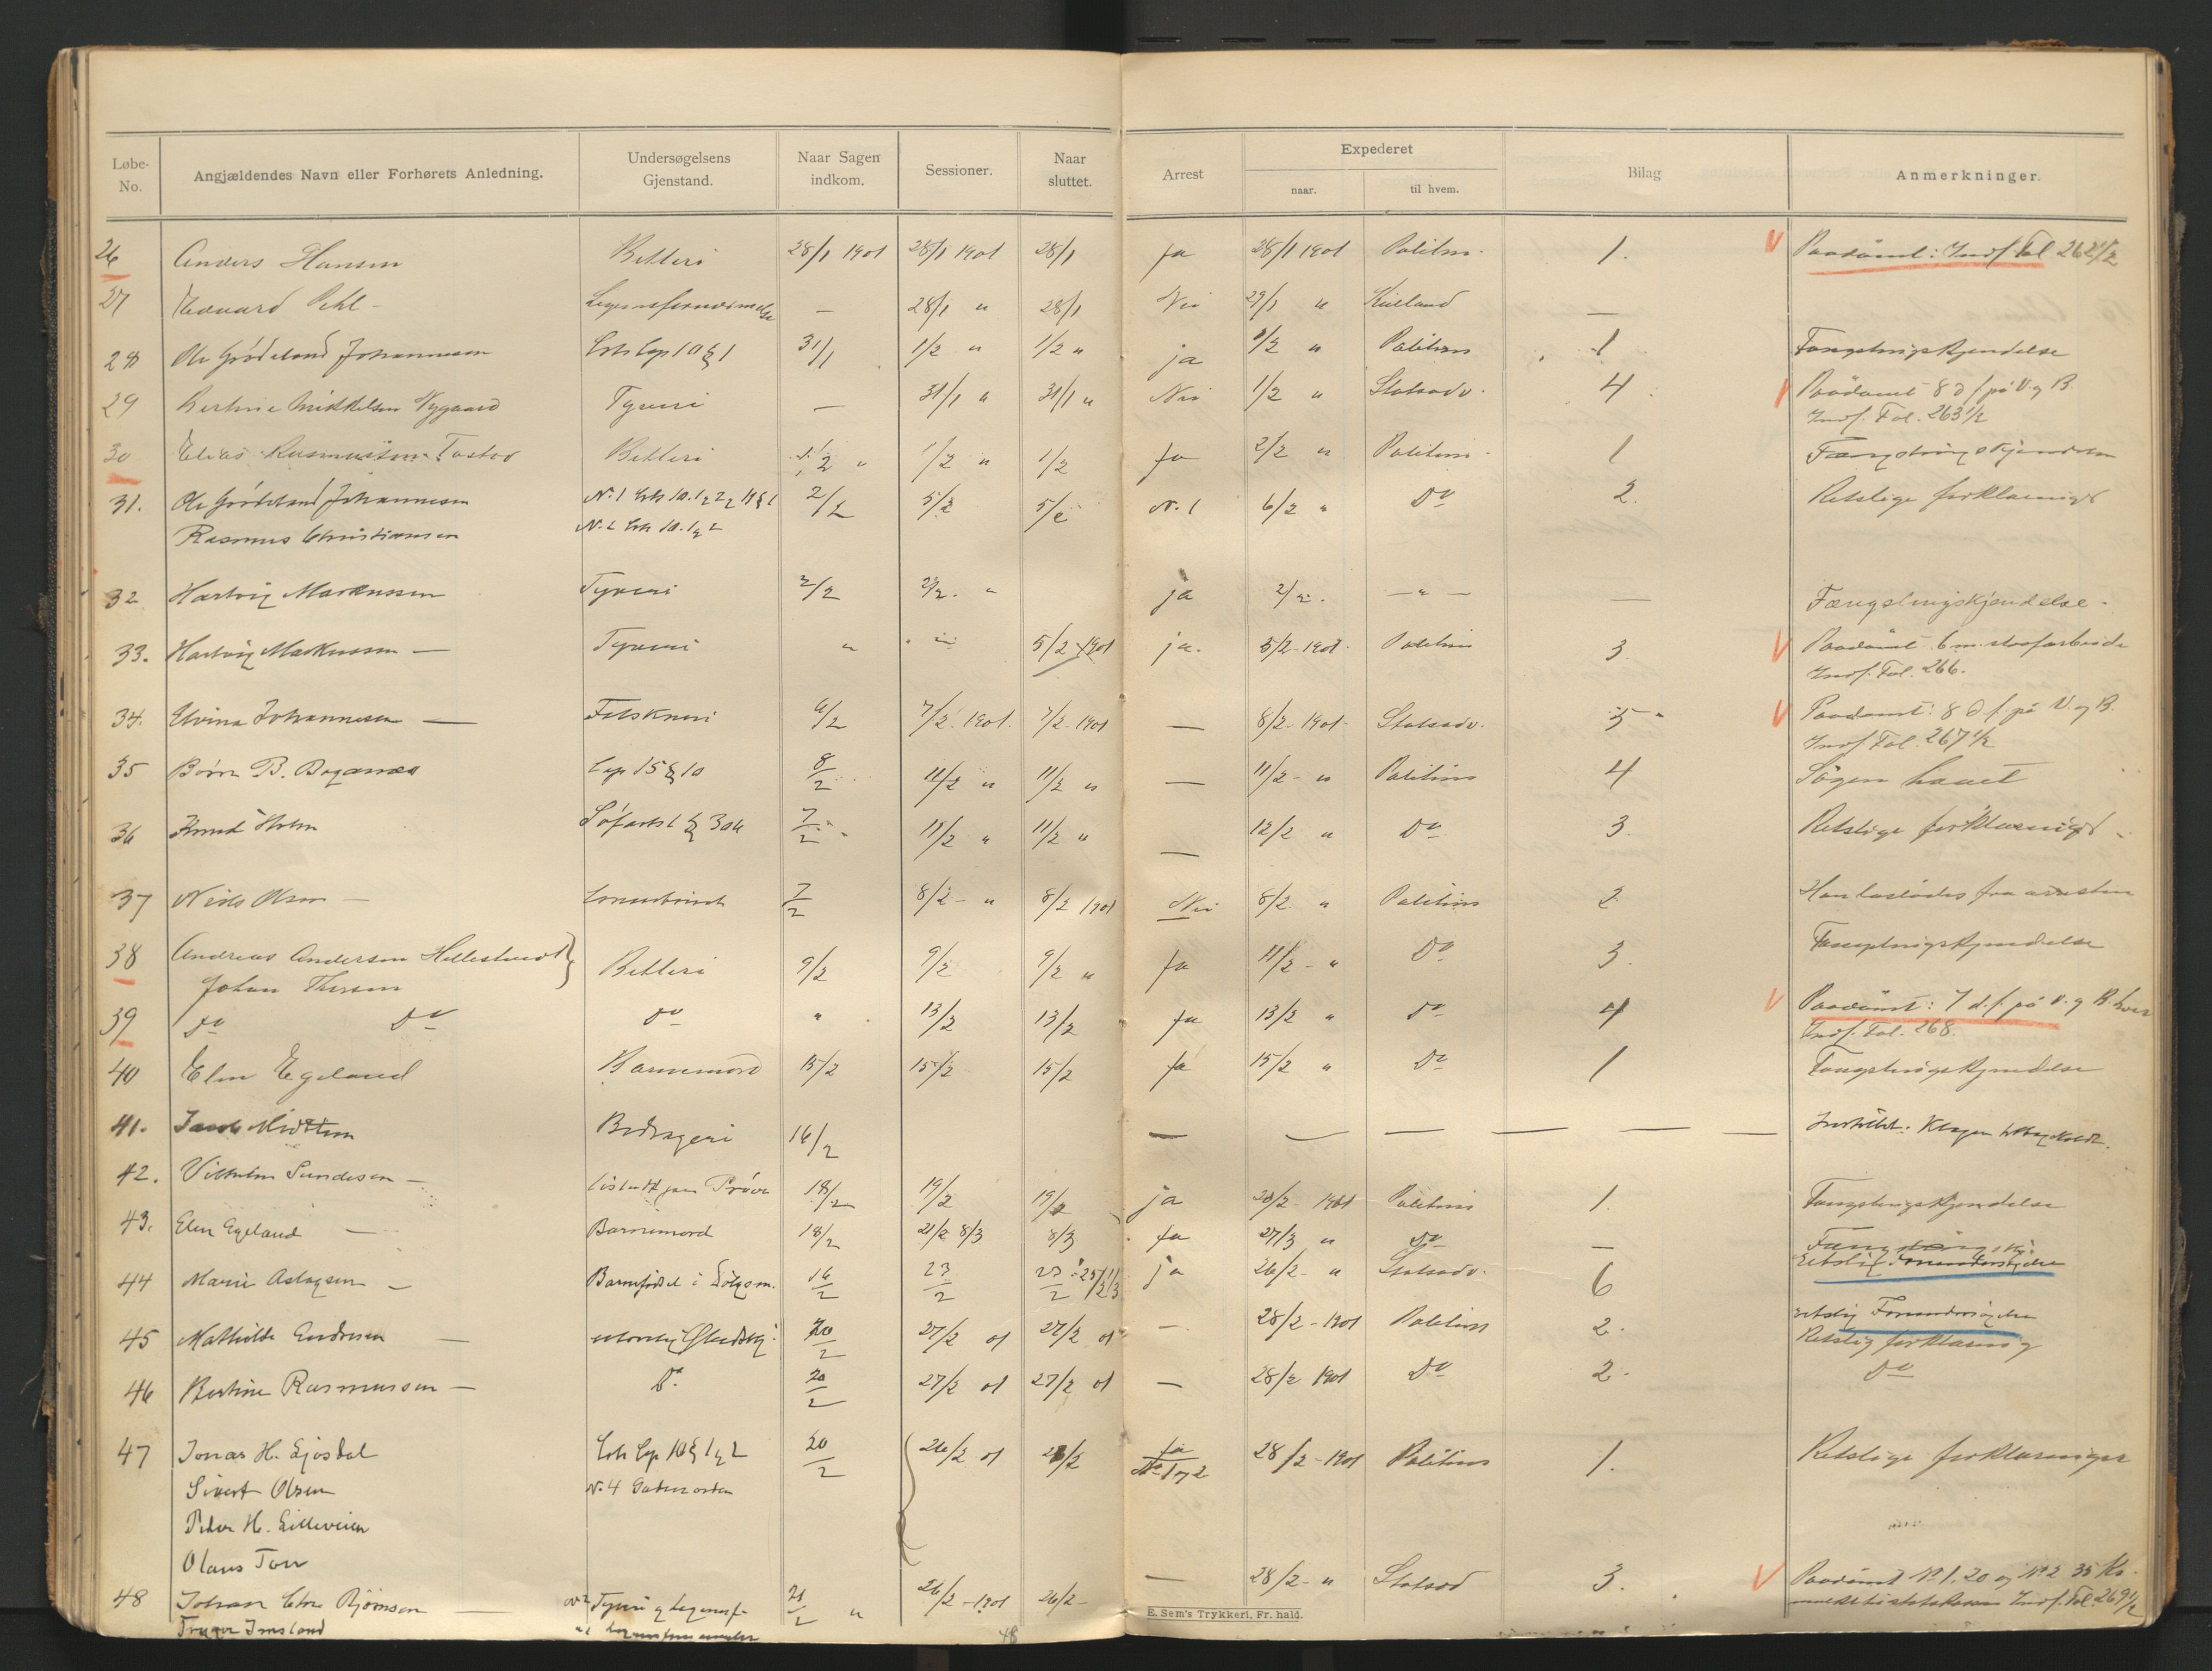 Løbe-No. Angjældendes Navn eller Forhørets Anledning. Undersøgelsens Gjenstand. Naar Sagen indkom. Sessioner. Naar sluttet. Arrest Expederet naar. til hvem. Bilag Anmerkninger.
26 Anders Hansen Betleri 28/1 1901 28/1 1901 28/1 Ja 28/1 1901 Politim. 1. V Paadømt: Indf. Fol 262 1/2
27 Edvard Pihl – Legemsfornærmelse — 28/1 " 28/1 Nei 29/1 " Kielland —
28 Ole Grødeland Johannesen Cap 10 § 1 31/1 1/2 " 1/2 " ja 1/2 " Politim 1 Fængslingskjendelse
29 Mikkelsen Nygaard Tyveri — 31/1 " 31/1 " Nei 1/2 " Statsadv. 4 V Paadømt 8 d f på V. og B.
Indf. Fol. 263 1/2
30 Elias Rasmussen Tasted Betleri 1/2 " 1/2 " 1/2 Ja 2/2 " Politim. 1 Fængslingskjendelse
31. Ole Grødeland Johannesen N. 1 2/2 5/2 5/2 N. 1 6/2 " Do 2. Retslige forklaringer
Rasmus Christiansen N. 2
32 Hartvig Markussen Tyveri 2/2 2/2. " ja 2/2. — " — — Fængslingskjendelse -
33. Hartvig Markussen — Tyveri " " 5/2 1901 ja. 5/2 - 1901 Politim 3. V Paadømt 6 m. strafarbeide
Indf. Fol. 266.
34. Elvina Johannesen — Falskneri 6/2 7/2 1901. 7/2 1901 — 8/2 - 1901 Statsadv. 5 V Paadømt: 8 d f. på V. og B.
Indf. Fol. 267 1/2
35 Børre B. Bogenæs Cap 15 § 10 8/2 11/2 " 11/2 " — 11/2 - " Politim 4 Sagen hævet
36 Knud Holm Søfartsl § 306 7/2 11/2 " 11/2 " — 12/2 " Do 3. Retslige forklaringer
37 Niels Olsen — 7/2 8/2 - " 8/2 1901 Nei 8/2 " Politim 2 Han løslades fra arresten
38 Andreas Andersen Hellestveit } Betleri 9/2 9/2 9/2 " Ja 11/2 - " Do 3. Fængslingskjendelse
Johan
39 Do Do Do " 13/2 13/2 Ja 13/2 " Do 4 V Paadømt: 7 d. f. på V. og B. hver
Indf. Fol. 268.
40 Elen Egeland Barnemord 15/2 15/2 15/2 Ja 15/2 " Do 1 Fængslingskjendelse
41. Bedrageri 16/2 — — — — — — Indstillet: Klagen
42. Vilhelm Sundesen — Prøve 18/2 19/2 19/2 ja 20/2 1901 Politim 1. Fængslingskjendelse
43. Elen Egeland — Barnemord 18/2 21/2 8/3 8/3 Ja 27/3 " Do —
44 Marie Aslagsen — Barnefødsel i Dølgsm. 16/2 23/2 ja 26/2 - " Statsadv. 6 Retslig
45 Mathilde Endresen — 20/2 27/2 01 27/2 01 — 28/2 - 1901 Politim 2. retslig Forundersøgelse
Retslig forklaring
46 Bertine Rasmussen — Do. 20/2 27/2 01 27/2 01 — 28/2 1901 Do 2. Do
47 Jonas H. Gjøsdal Cap 10 § 1 20/2 26/2 01 Ja No 1 og 2 28/2 - 1901 Politim 1. Retslige forklaringer
Sivert Olsen N. 4 Gadeuorden
Peder H. Lilleveien
Olaus
48 Johan Chr Bjørnsen — Tyveri og 21/2 " 26/2 - 1901 26/2 - — 28/2 - " Statsad 3. V Paadømt No 1. 20 og No 2 35 Kr.
Indf. Fol. 269 1/2
Imsland
48
E. Sem's Trykkeri, Fr. hald.